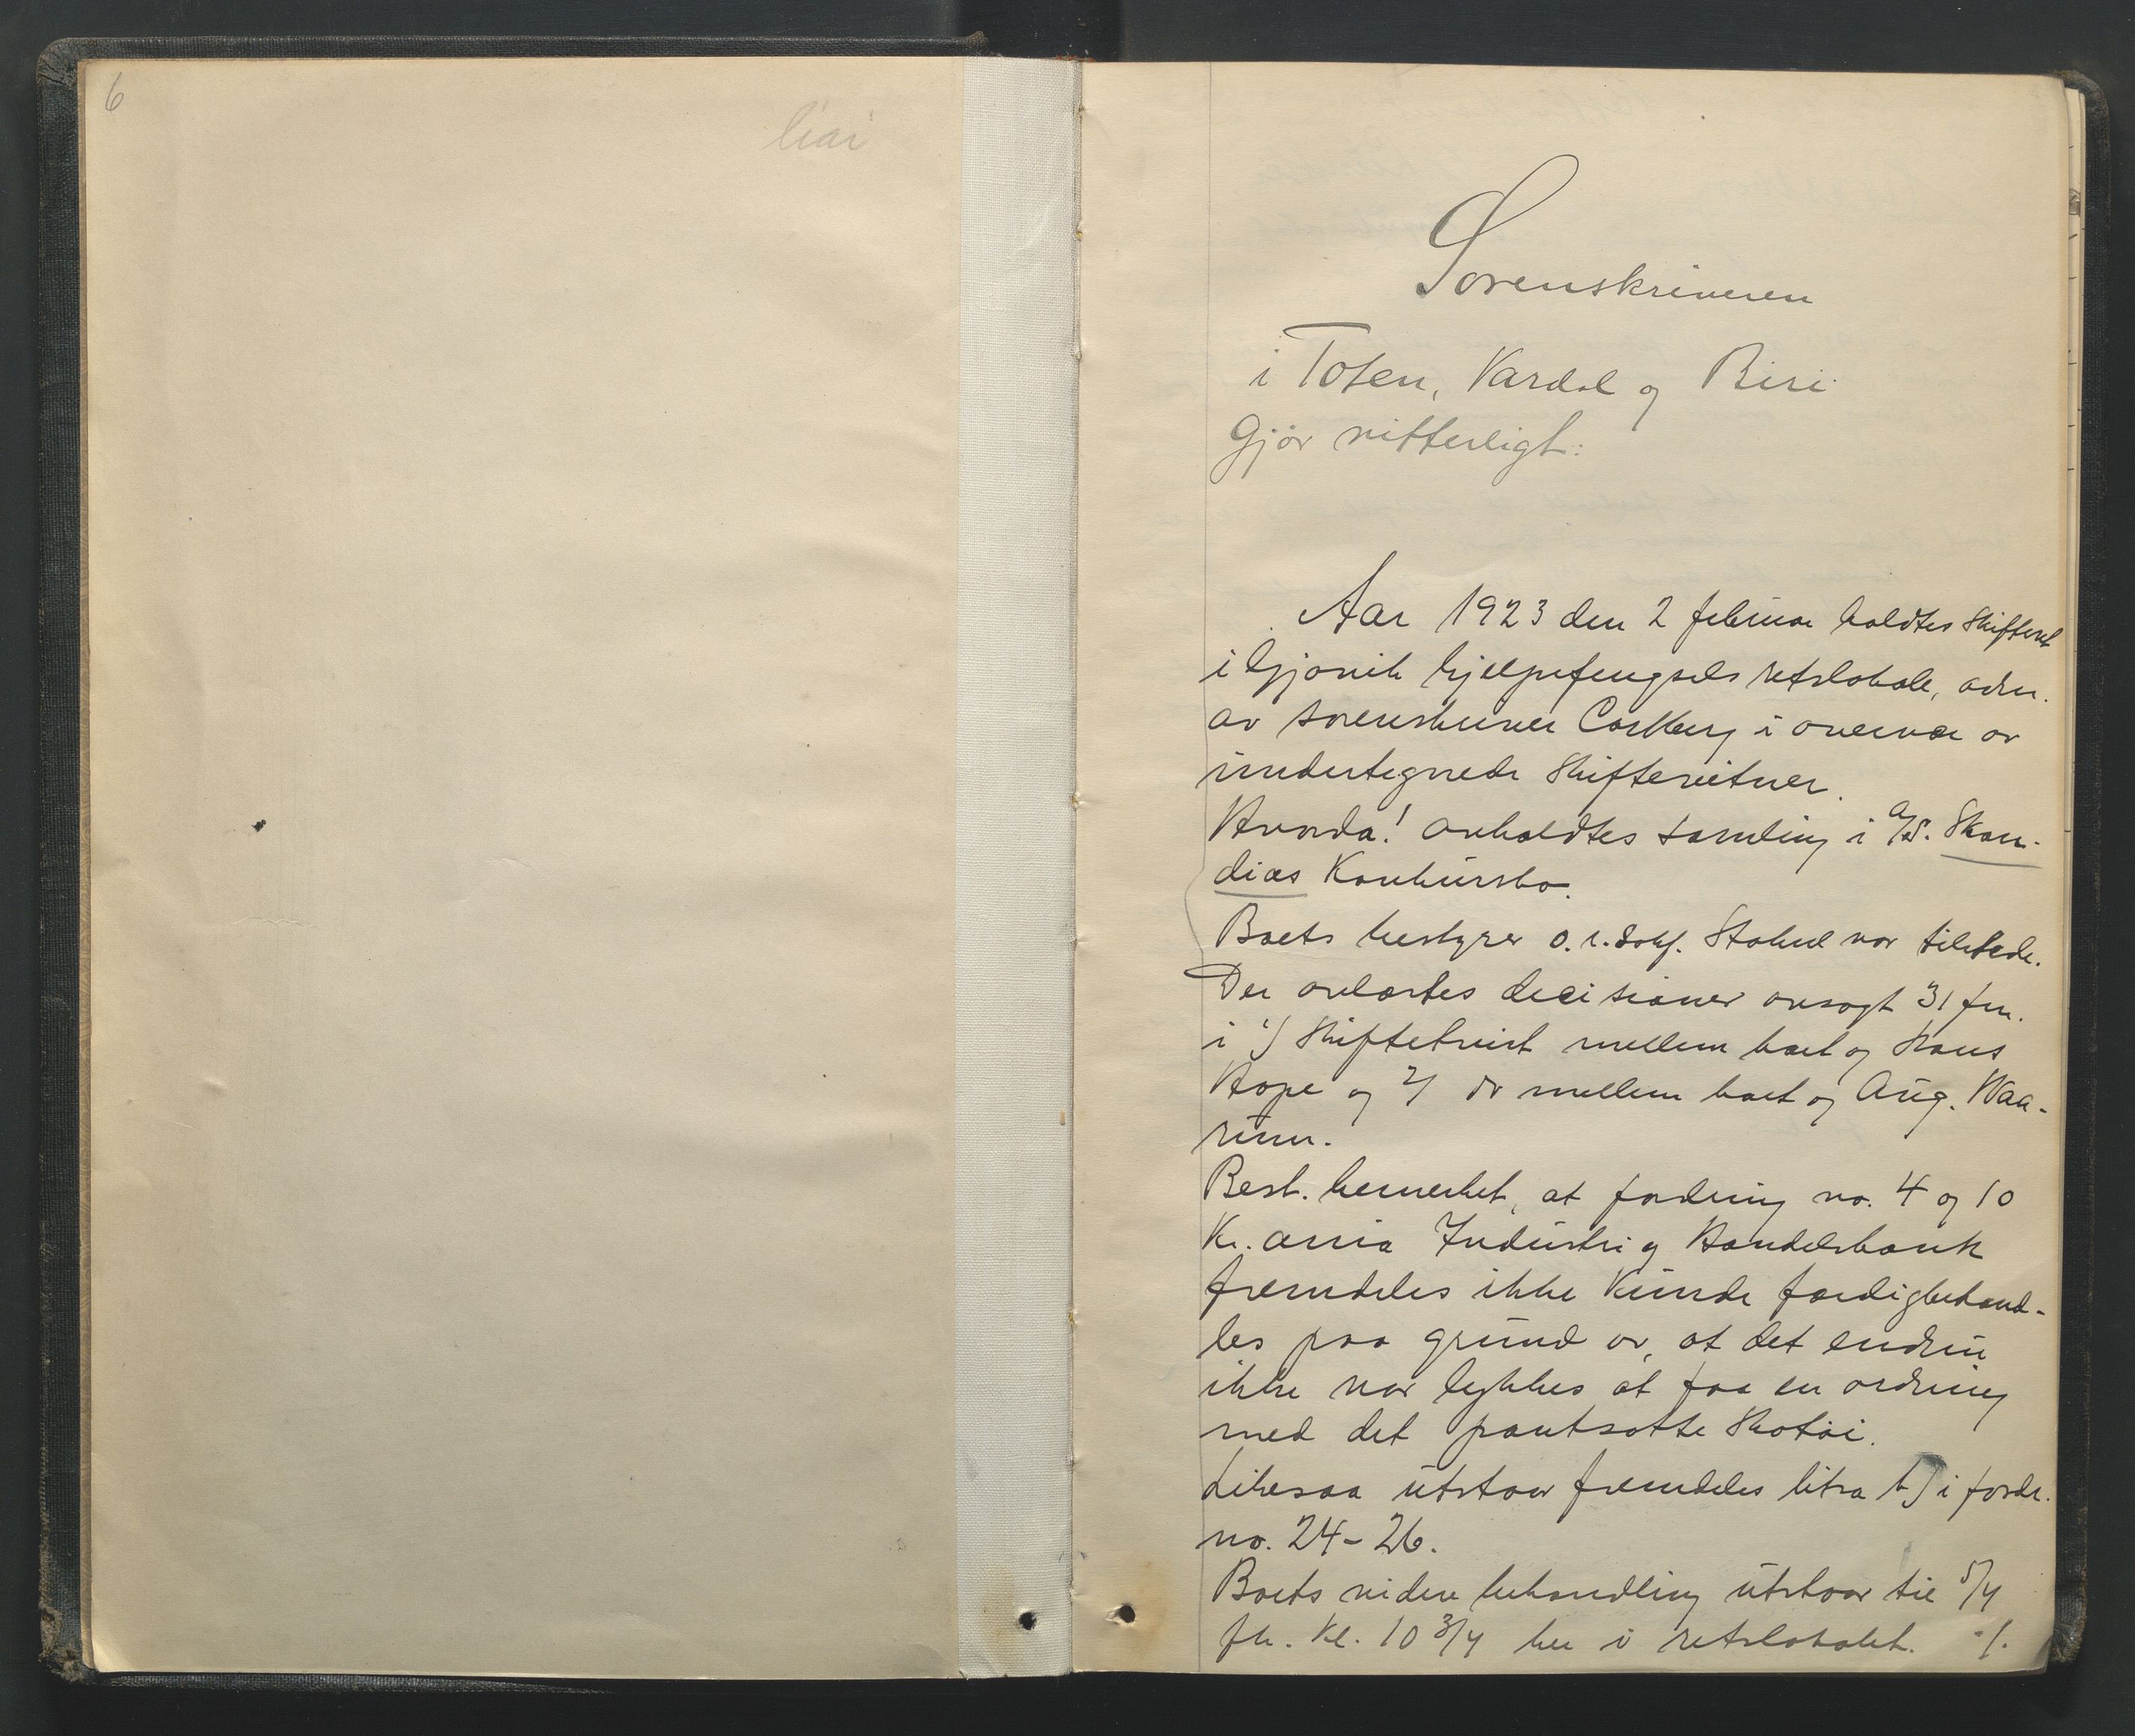 6
Sorenskriveren
i Toten, Vardal og Biri
Gjør vitterligt:
Aar 1923 den 2 februar holdtes Skifteret
i Gjøvik hjelpefengsels retslokale, adm.
av sorenskriver Carlberg i overvær av
undertegnede Skiftevitner.
Hvorda! avholdtes samling i A/S. Skan-
dias Konkursbo.
Boets bestyrer o.r.sakf. Stabel var tilstede.
Der avlæstes decisioner avsagt 31 fm.
i 1/ Skiftetvist mellem boet og Hans
Hope og 2/ do mellem boet og Aug. Waa-
rum.
Best. bemerket, at fordring no. 4 og 10
Kr.ania Industri og Handelsbank
fremdeles ikke Kunde færdigbehand-
les paa grund av, at det endnu
ikke var lykkes at faa en ordning
med det pantsatte Skotøi.
Likesaa utstaar fremdeles litra b) i fordr.
no. 24-26.
Boets videre behandling utstaar til 5/4
fk. Kl. 10 3/4 her i retslokalet. ./.